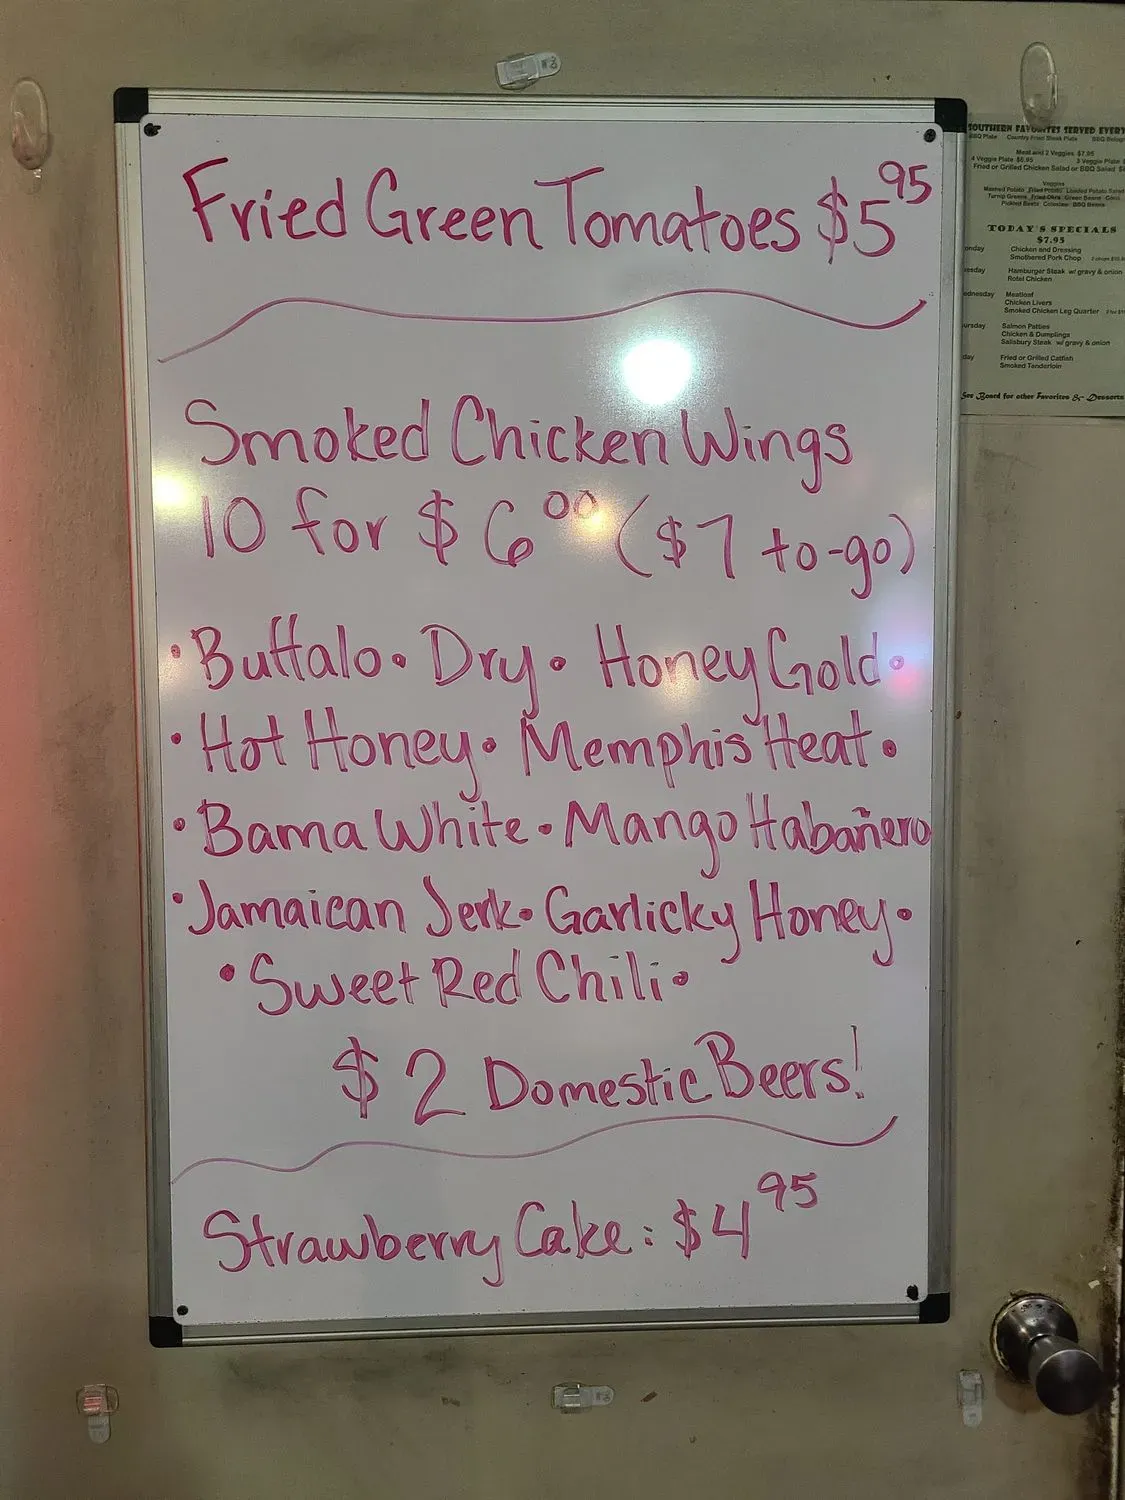 Fried Green Tomatoes $5 95
Smoked Chicken Wings
10 for $6 00 ($7 to-go)
• Buffalo • Dry • Honey Gold •
• Hot Honey • Memphis Heat •
• Bama White • Mango Habañero
• Jamaican Jerk • Garlicky Honey •
• Sweet Red Chili •
$2 Domestic Beers!
Strawberry Cake: $4 95
SOUTHERN FAVORITES SERVED EVERY
BBQ Plate Country Fried Steak Plate BBQ
Meat and 2 Veggies $7.95
4 Veggie Plate $6.95 3 Veggie Plate
Fried or Grilled Chicken Salad or BBQ Salad
Veggies
Mashed Potato Fried Potato Loaded Potato Salad
Turnip Greens Fried Okra Green Beans
Pickled Beets Coleslaw BBQ Beans
TODAY'S SPECIALS
$7.95
onday Chicken and Dressing
Smothered Pork Chop
esday Hamburger Steak w/ gravy & onion
Rotel Chicken
ednesday Meatloaf
Chicken Livers
Smoked Chicken Leg Quarter
ursday Salmon Patties
Chicken & Dumplings
Salisbury Steak w/ gravy & onion
day Fried or Grilled Catfish
Smoked Tenderloin
See Board for other Favorites & Desserts